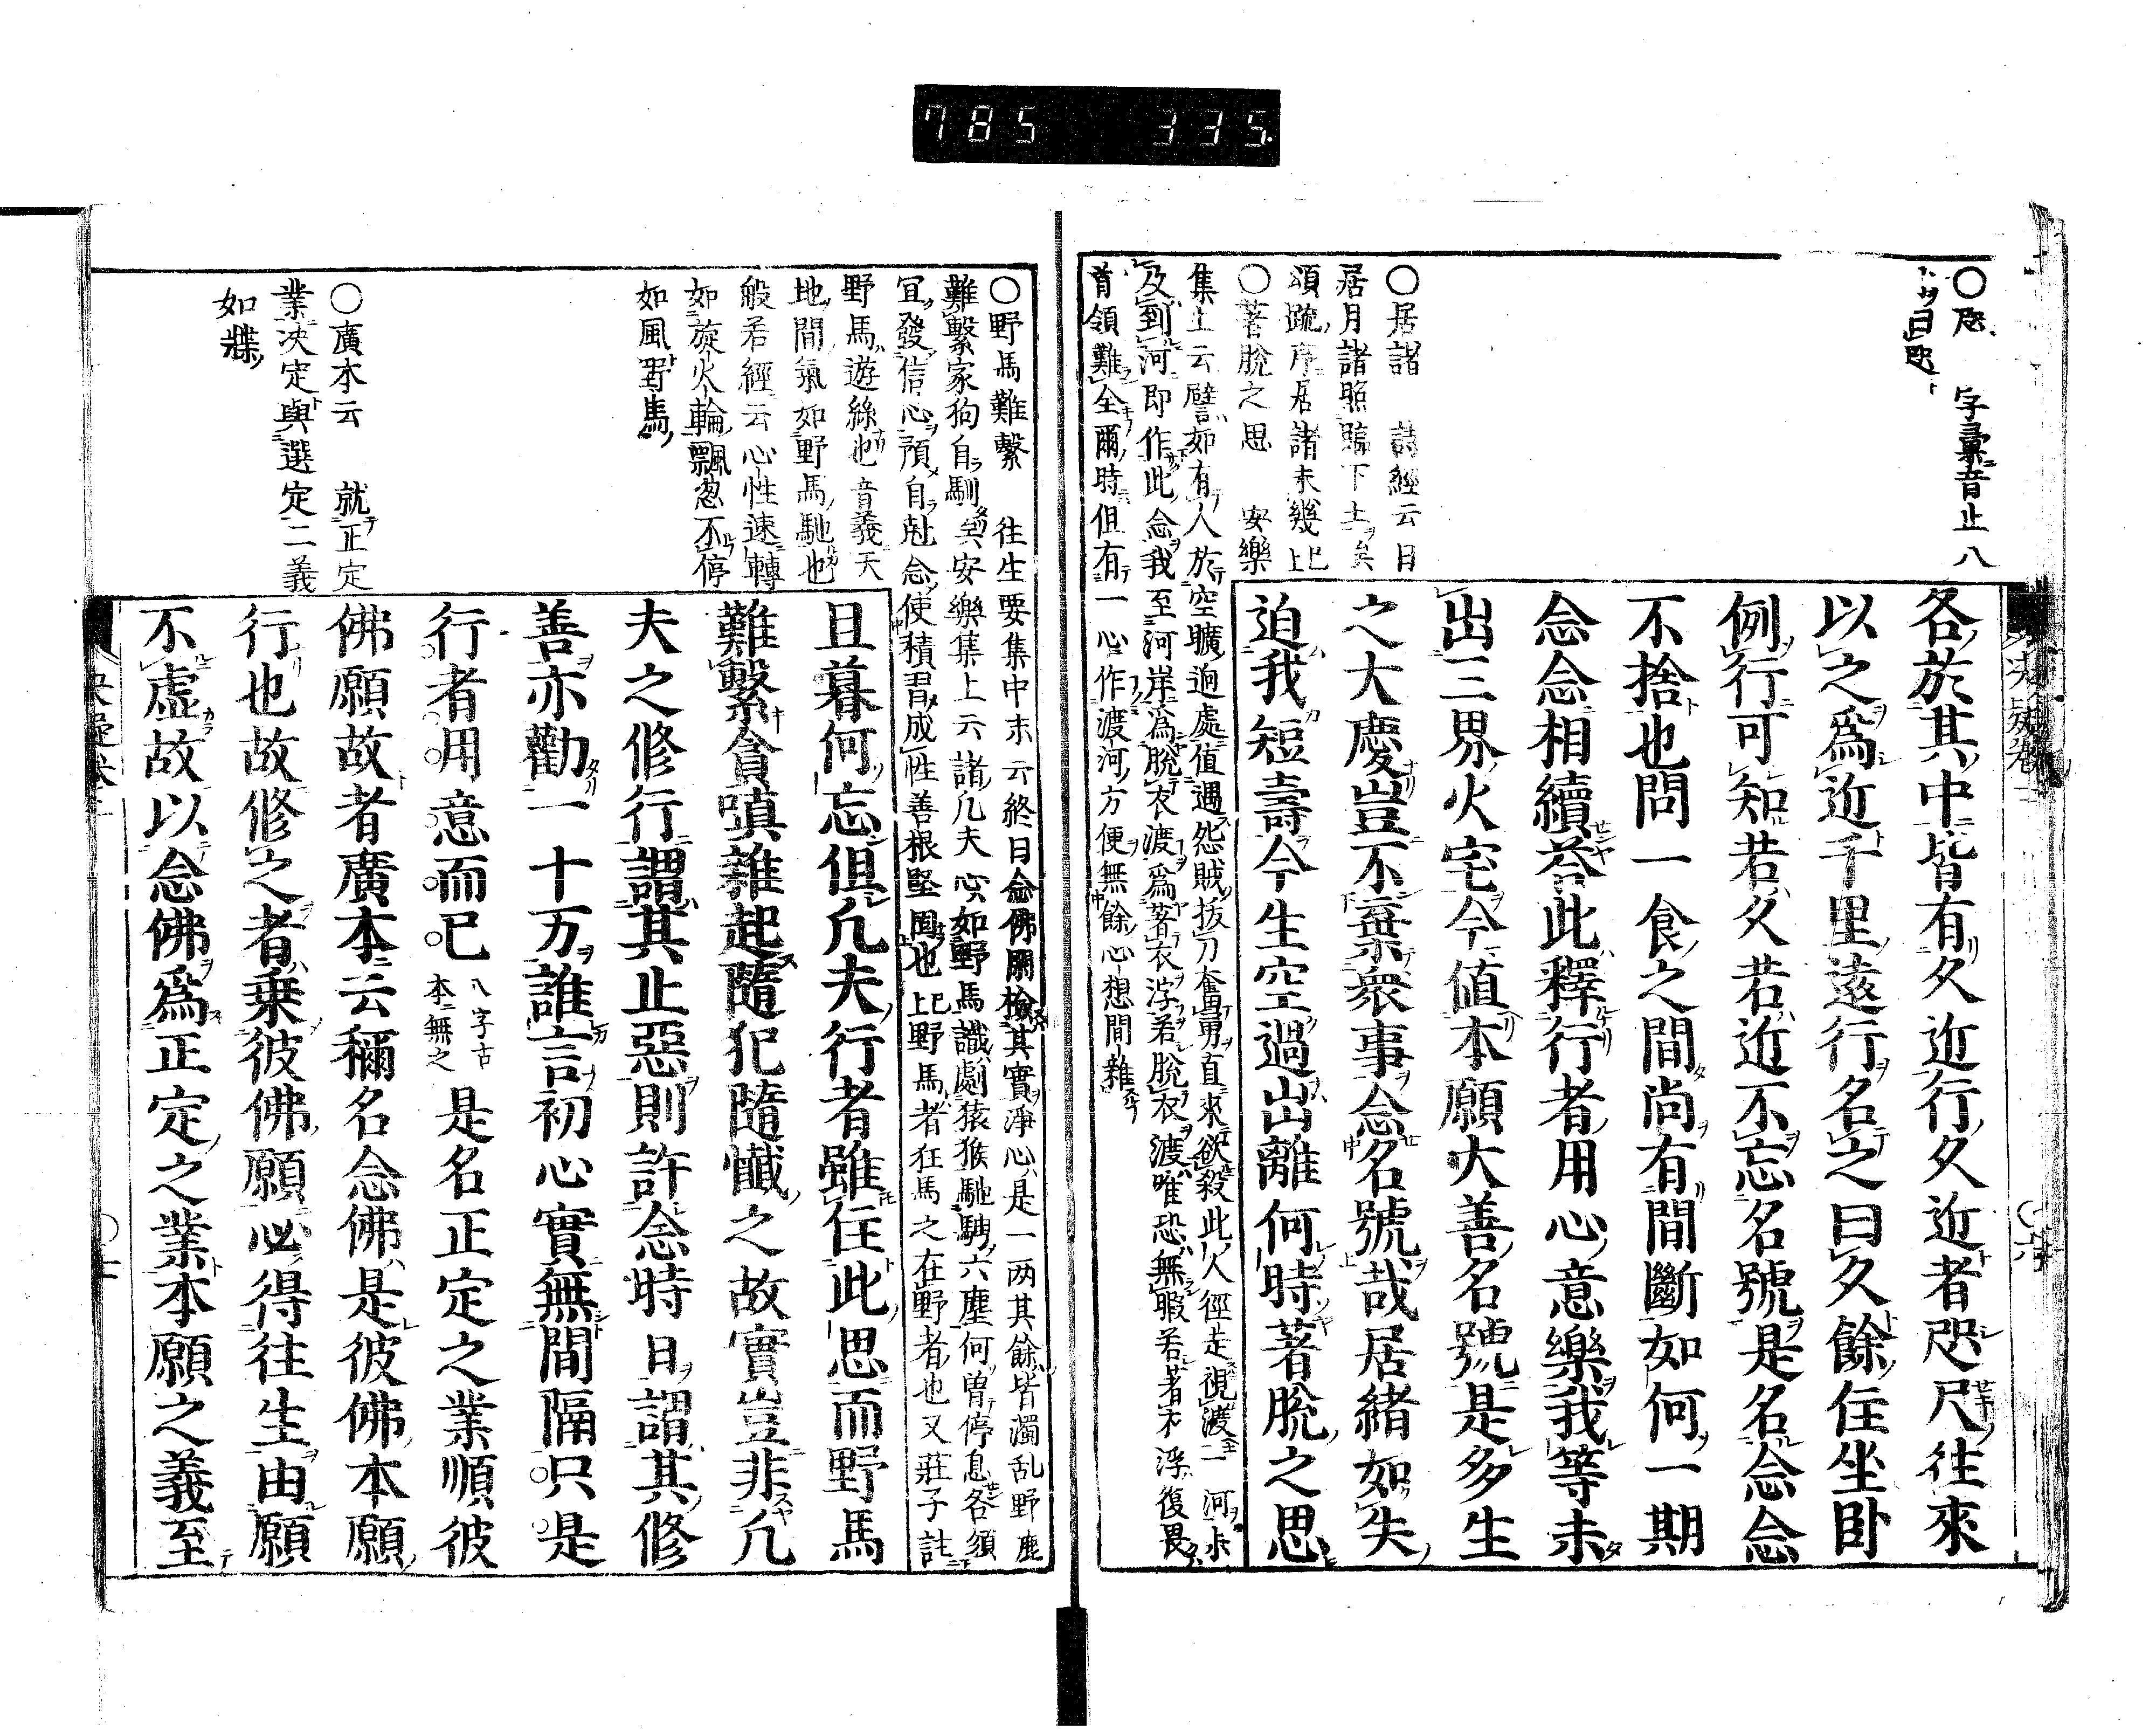 785 335
○咫 字彙音止八
寸曰咫
各於其中皆有久近行久近者咫尺往來
以之爲近千里遠行名之曰久餘住坐臥
例行可知若久若近不忘名號是名念念
不捨也問一食之間尚有間斷如何一期
念念相續答此釋行者用心意樂我等未
出三界火宅今値本願大善名號是多生
之大慶豈不棄衆事念名號哉居緒如失
迫我短壽今生空過出離何時著脫之思
○居諸 詩經云日
居月諸照臨下土矣
頌疏序居諸未幾已上
○著脫之思 安樂
集上云譬如有人於空曠迥處値遇怨賊拔刀奮勇直來欲殺此人徑走視渡一河未
及到河即作此念我至河岸爲脫衣渡爲著衣浮若脫衣渡唯恐無暇若著衣浮復畏
首領難全爾時但有一心作渡河方便無餘心想間雜
○野馬難繫 往生要集中末云終日念佛閑檢其實淨心是一兩其餘皆濁乱野鹿
難繫家狗自馴矣安樂集上云諸凡夫心如野馬識劇猿猴馳騁六塵何曾停息各須
宜發信心預自尅念使積習成性善根堅固也已上野馬者狂馬之在野者也又莊子註
野馬遊絲也音義天
地間氣如野馬馳也
般若經云心性速轉
如旋火輪飄忽不停
如風野馬
且暮何忘但凡夫行者雖住此思而野馬
難繫貪嗔雜起隨犯隨懺之故實豈非凡
夫之修行謂其止惡則許念時日謂其修
善亦勸一十万誰言初心實無間隔只是
行者用意而已八字古本無之是名正定之業順彼
佛願故者廣本云稱名念佛是彼佛本願
行也故修之者乗彼佛願必得往生由願
不虛故以念佛爲正定之業本願之義至
○廣本云 就正定
業决定與選定二義
如牒